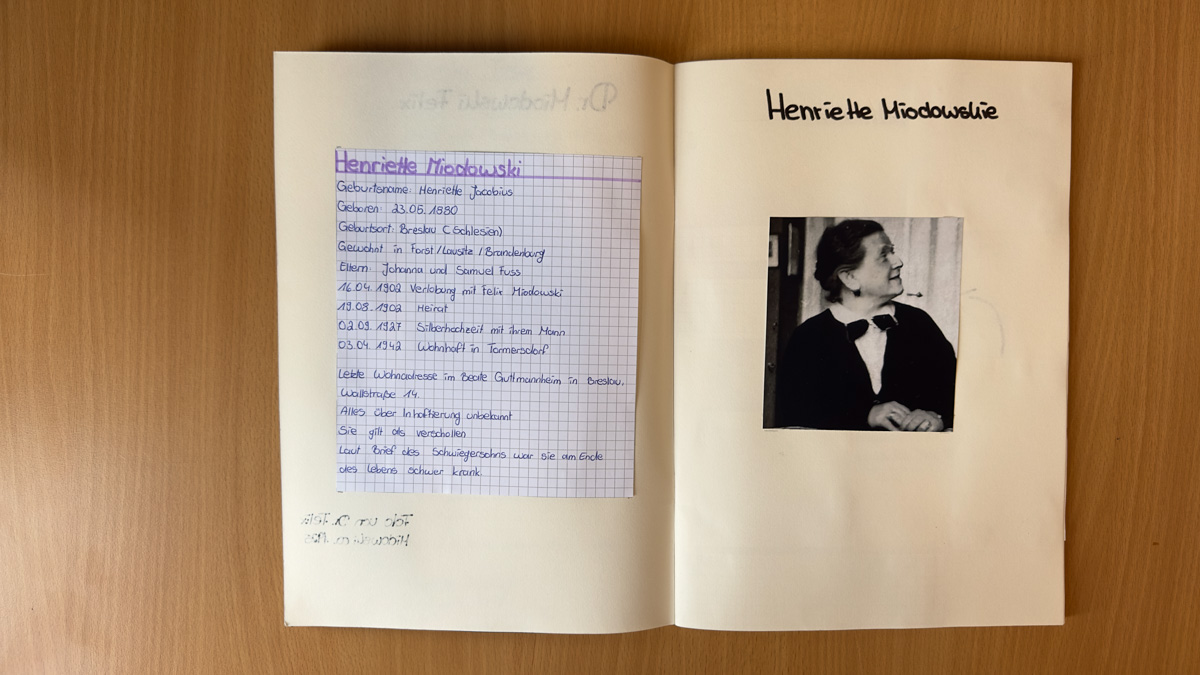 Dr. Miodowski Felix
Henriette Miodowski
Geburtsname: Henriette Jacobius
Geboren: 23.05.1880
Geburtsort: Breslau (Schlesien)
Gewohnt in Forst/Lausitz/Brandenburg
Eltern: Johanna und Samuel Fuss
16.04.1902 Verlobung mit Felix Miodowski
19.08.1902 Heirat
02.09.1927 Silberhochzeit mit ihrem Mann
03.04.1942 Wohnhaft in Tormersdorf
Letzte Wohnadresse im Beate Guttmannheim in Breslau,
Wallstraße 14.
Alles über Inhaftierung unbekannt
Sie gilt als verschollen
Laut Brief des Schwiegersohns war sie am Ende
des Lebens schwer krank
Foto von Dr. Felix
Miodowski ca. 1925
Henriette Miodowskie